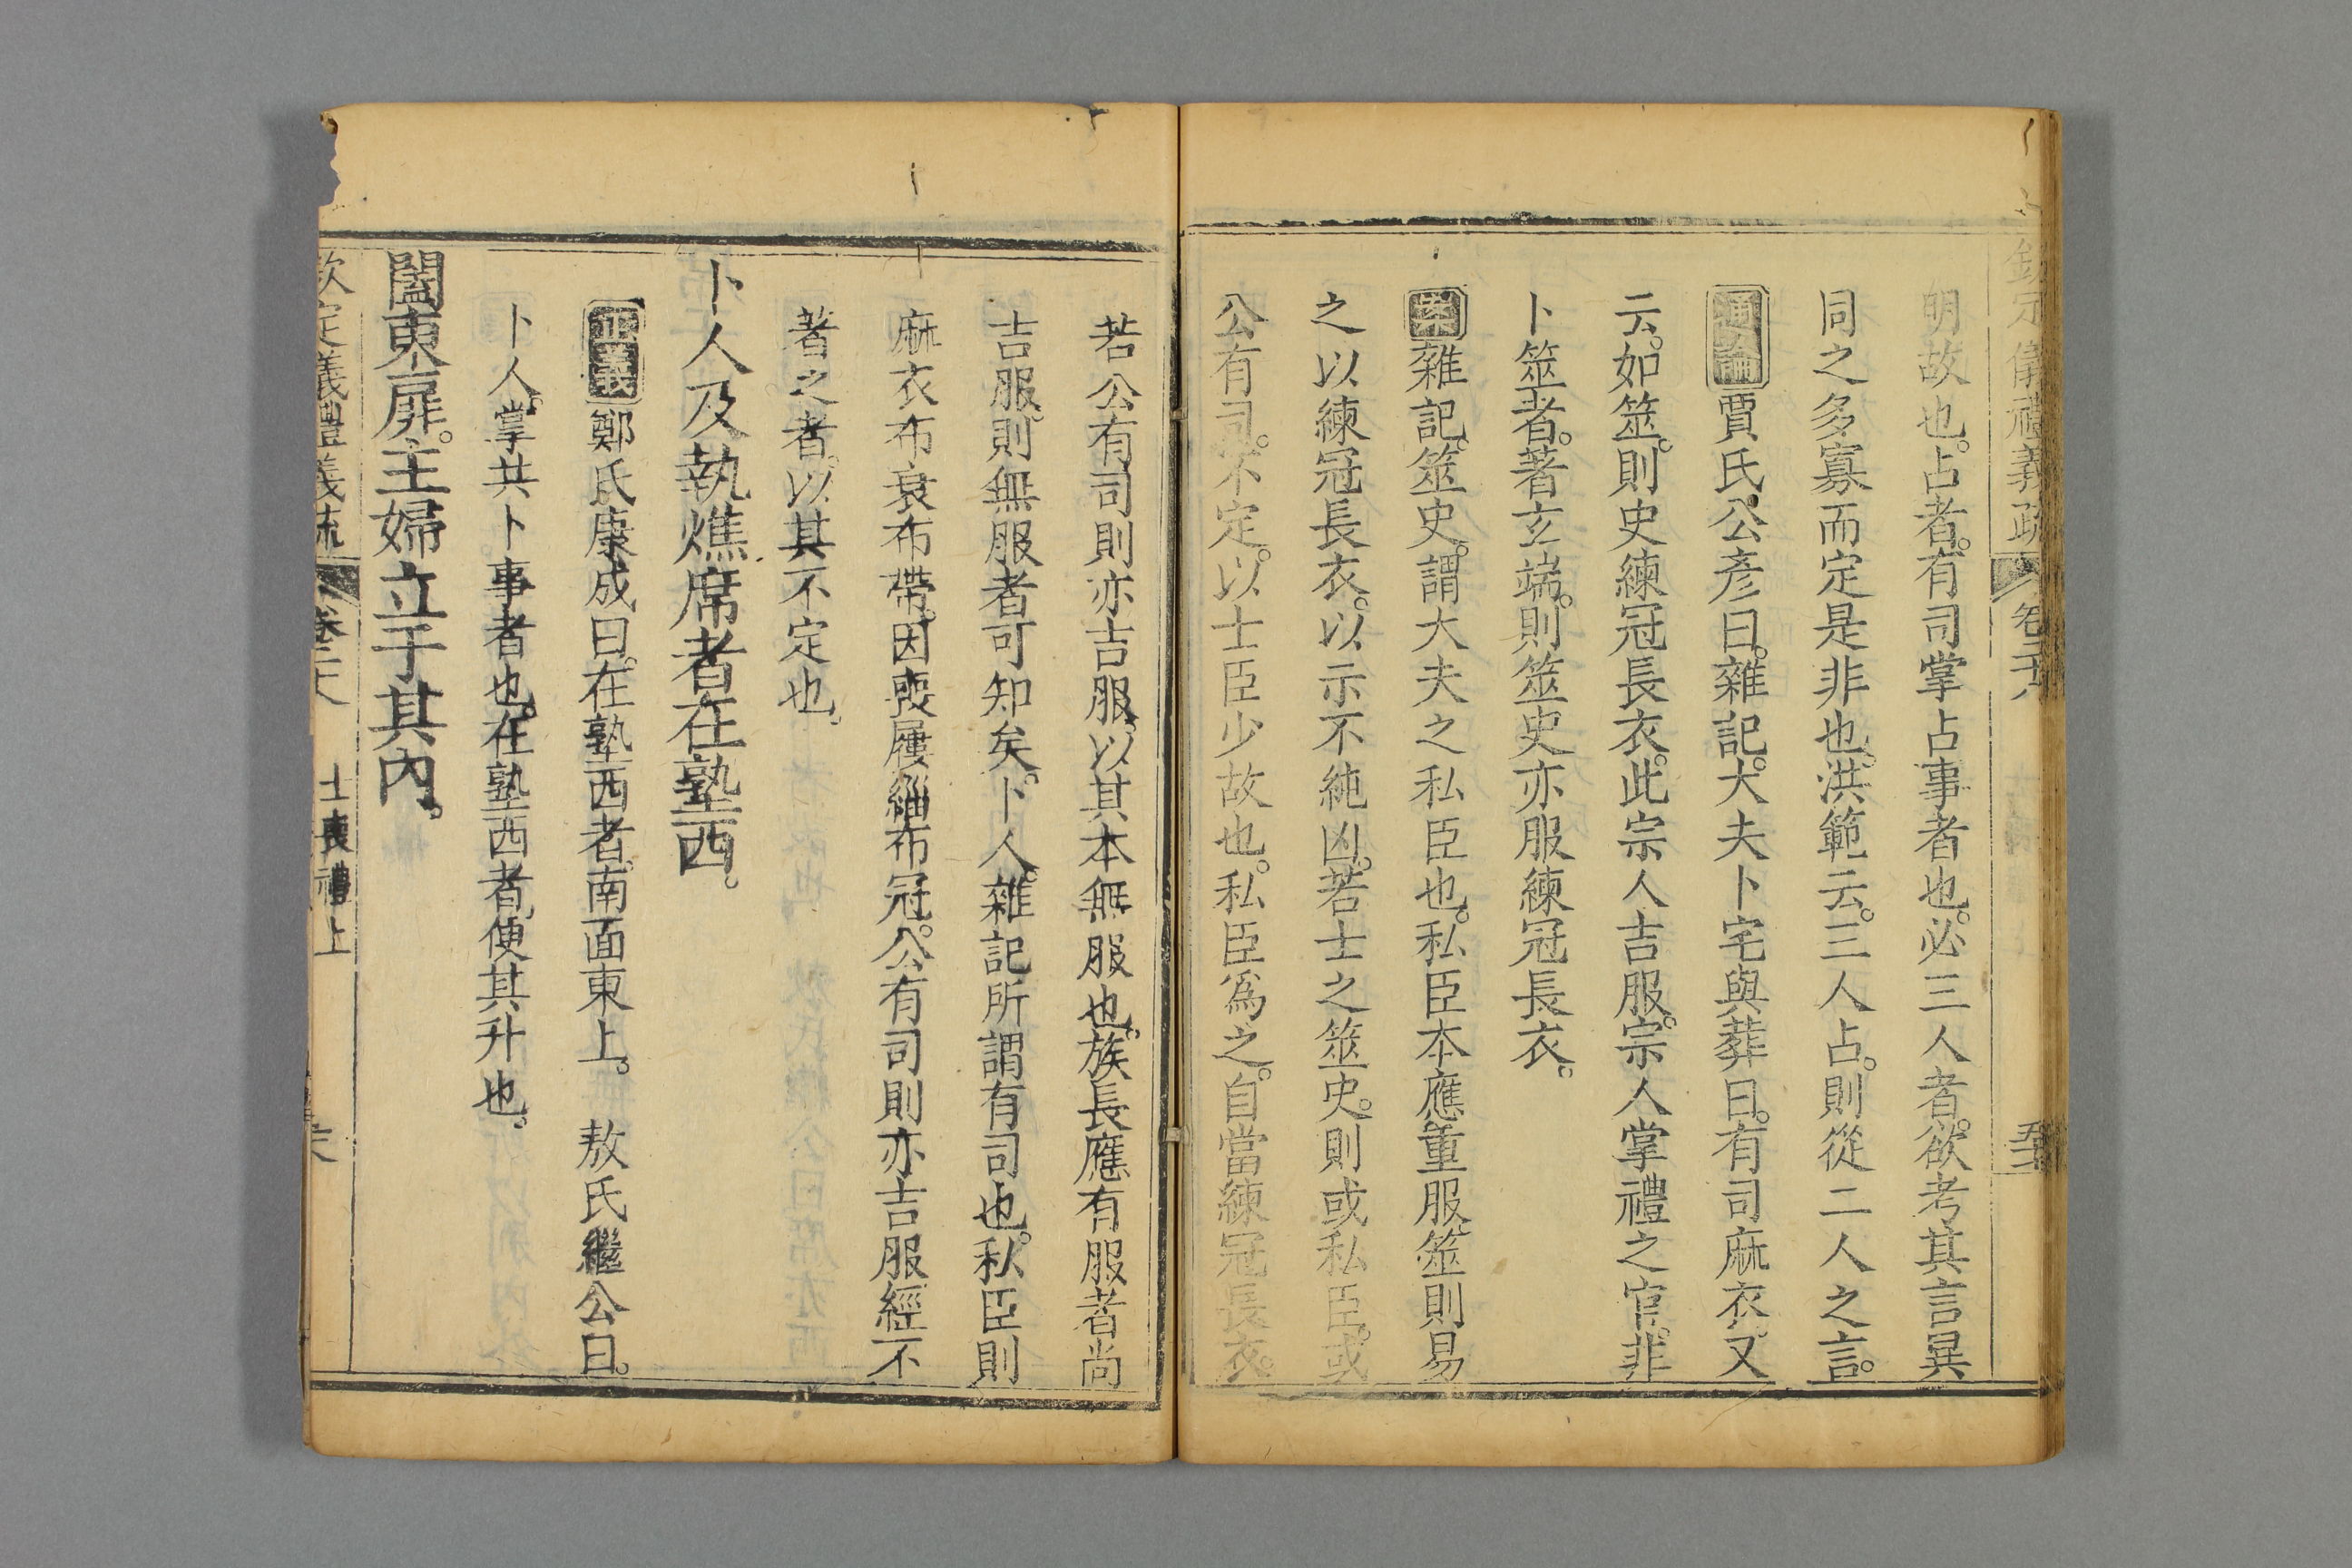 欽定儀禮義疏 卷二十八
明故也。占者。有司掌占事者也。必三人者。欲考其言異
同之多寡而定是非也。洪範云。三人占。則從二人之言。
通論 賈氏公彥曰。雜記。大夫卜宅與葬日。有司麻衣。又
云。如筮。則史練冠長衣。此宗人吉服。宗人掌禮之官。非
卜筮者。著玄端。則筮史亦服練冠長衣。
案 雜記。筮史。謂大夫之私臣也。私臣本應重服。筮則易
之以練冠長衣。以示不純凶。若士之筮史。則或私臣。或
公有司。不定。以士臣少故也。私臣為之。自當練冠長衣。
若公有司則亦吉服。以其本無服也。族長應有服者尚
吉服。則無服者可知矣。卜人。雜記所謂有司也。私臣則
麻衣布衰布帶。因喪屨緇布冠。公有司則亦吉服經不
著之者。以其不定也。
卜人及執燋席者在塾西。
正義 鄭氏康成曰。在塾西者。南面東上。 敖氏繼公曰。
卜人。掌共卜事者也。在塾西者。便其升也。
闔東扉。主婦立于其內。
欽定儀禮義疏 卷二十八 士喪禮上